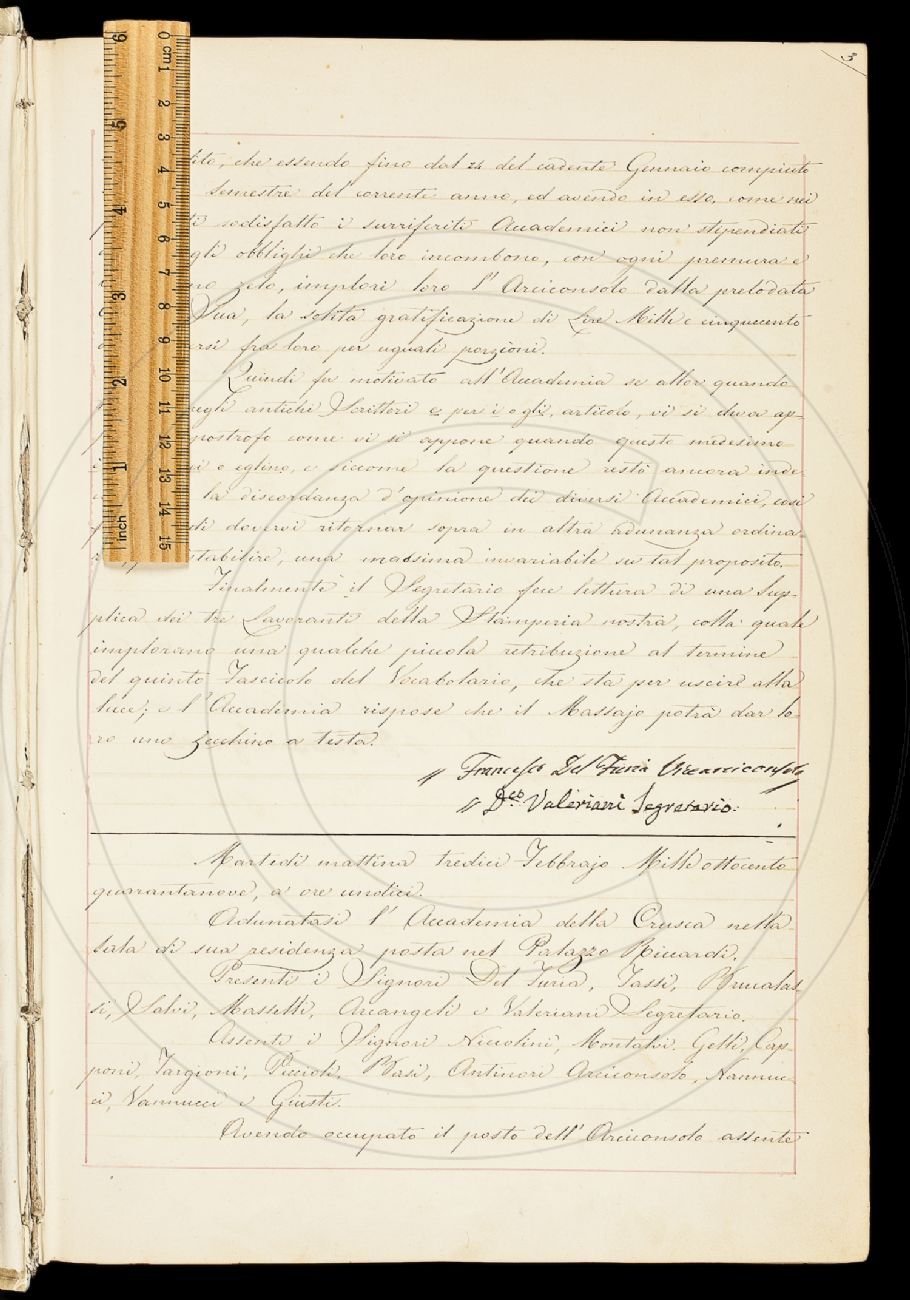 3
ito, che essendo fino dal 24 del cadente Gennaio compiuto
semestre del corrente anno, ed avendo in esso, come nei
ti sodisfatto i surriferiti Accademici non stipendiati
gli obblighi che loro incombono, con ogni premura e
zelo, implori loro l'Arciconsolo dalla prelodata
Sua, la solita gratificazione di Lire Mille e cinquecento
rsi fra loro per uguali porzioni.
Quindi fu motivato all'Accademia se allor quando
negli antichi Scrittori è per i o gli, articolo, vi si deva ap-
postrofo come vi si appone quando questo medesimo
o eglino, e siccome la questione restò ancora inde
la discordanza d'opinione dei diversi Accademici, così
di doversi ritornar sopra in altra adunanza ordina-
stabilire, una massima invariabile su tal proposito.
Finalmente il Segretario fece lettura di una Sup-
plica dei tre Lavoranti della Stamperia nostra, colla quale
implorano una qualche piccola retribuzione al termine
del quinto Fascicolo del Vocabolario, che sta per uscire alla
luce; e l'Accademia rispose che il Massajo potrà dar lo-
ro uno zecchino a testa.
// Francesco Del Furia Vicearciconsolo
// Dco. Valeriani Segretario.
Martedì mattina tredici Febbrajo Mille ottocento
quarantanove, a ore undici.
Adunatasi l'Accademia della Crusca nella
sala di sua residenza posta nel Palazzo Riccardi.
Presenti i Signori Del Furia, Tassi, Brucalas-
si, Salvi, Masselli, Arcangeli e Valeriani Segretario.
Assenti i Signori Niccolini, Montalvi, Gelli, Cap-
poni, Targioni, Piccioli, Basi, Antinori Arciconsolo, Nannuc-
ci, Vannucci e Giusti.
Avendo occupato il posto dell'Arciconsolo assente